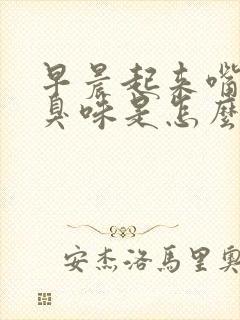 早晨起来嘴
臭味是怎麽
安杰洛馬里奧